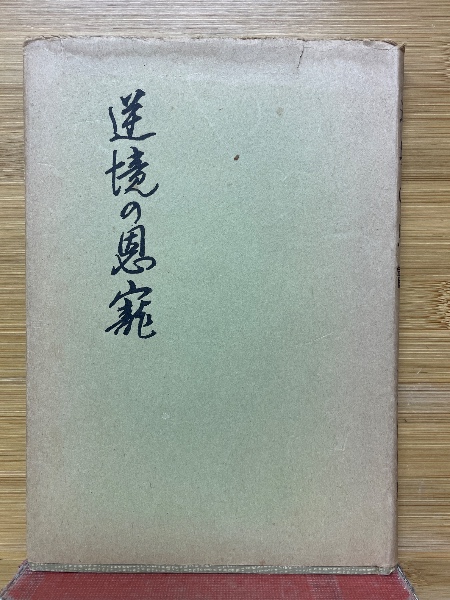 逆境の恩寵